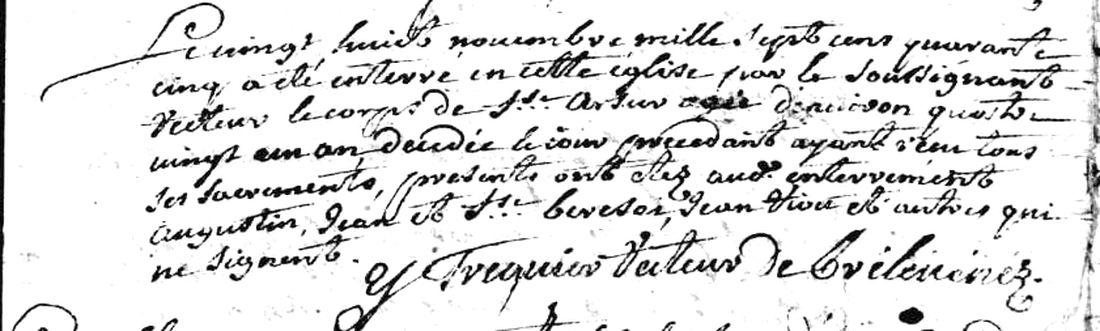 Le vingt huict novembre mille sept cens quarante
cinq a eté enterré en cette eglise par le soussignant
recteur le corps de Artur agé d'environ quatre
vingt un an decedée le jour precedant ayant recu tous
ses sacrements, presents ont etez aud. enterrement
augustin, Jean et Jean et autres qui
ne signent.
Y Trequier Recteur de brelevenez.